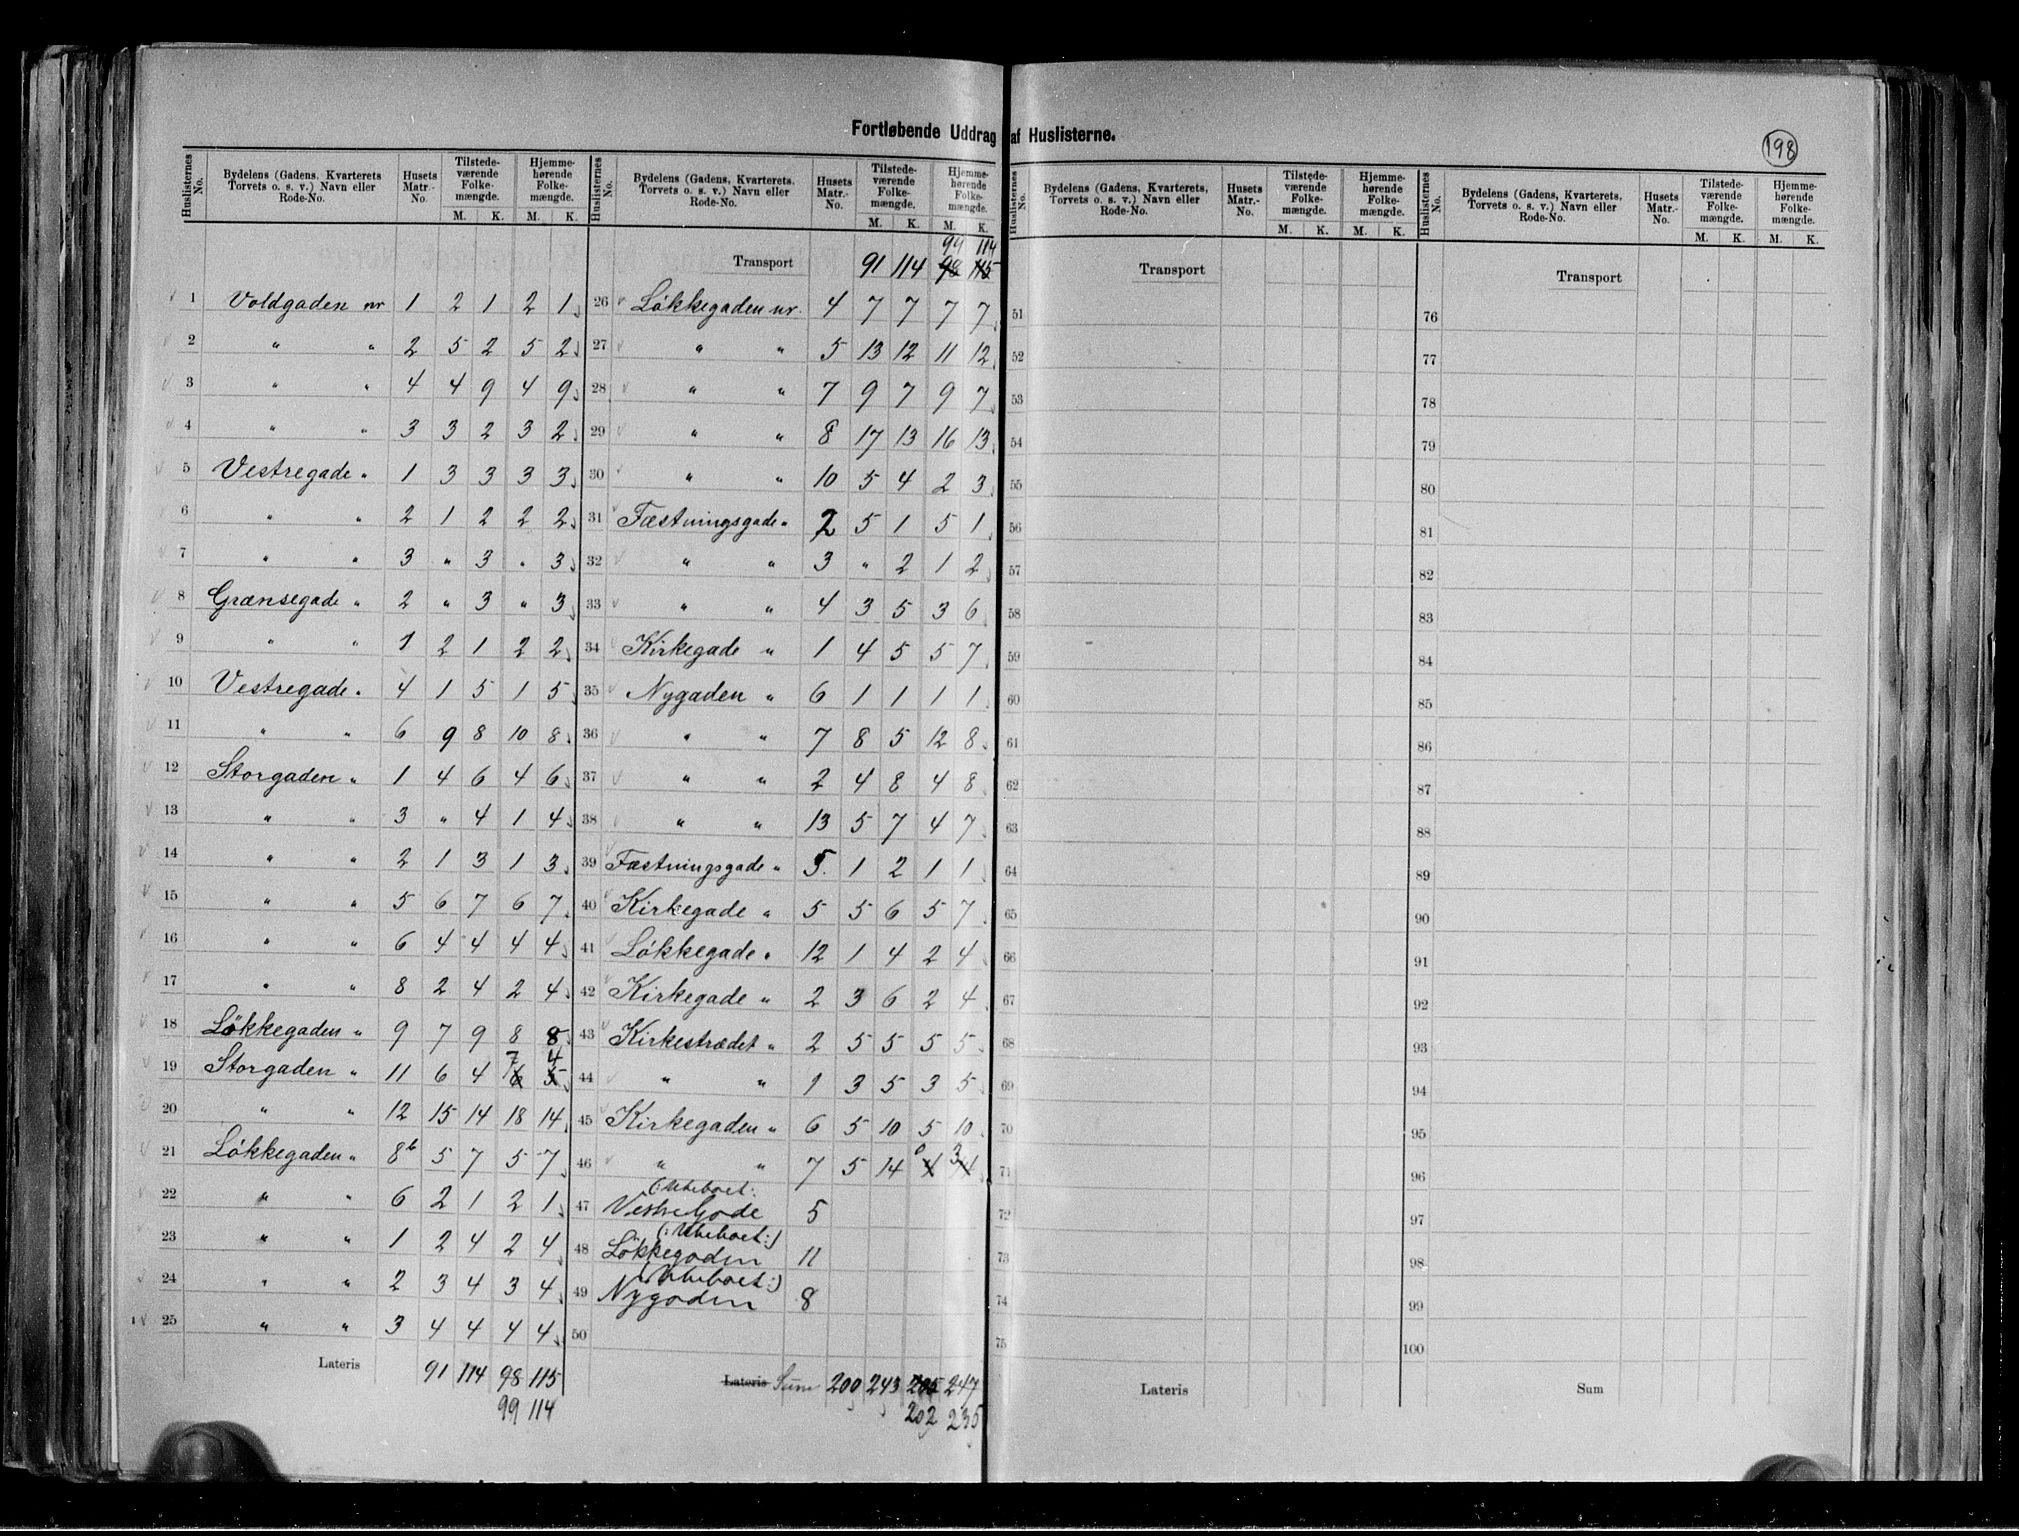 Fortløbende Uddrag af Huslisterne.
198
Huslisternes No. Bydelens (Gadens, Kvarterets Torvets o. s. v.) Navn eller Rode-No. Husets Matr.-No. Tilstede-værende Folke-mængde. M. K. Hjemme-hørende Folke-mængde. M. K.
1 Voldgaden nr 1 2 1 2 1
2 " " 2 5 2 5 2
3 " " 4 4 9 4 9
4 " " 3 3 2 3 2
5 Vestregade " 1 3 3 3 3
6 " " 2 1 2 2 2
7 " " 3 " 3 " 3
8 Grænsegade " 2 " 3 " 3
9 " " 1 2 1 2 2
10 Vestregade " 4 1 5 1 5
11 " " 6 9 8 10 8
12 Storgaden " 1 4 6 4 6
13 " " 3 " 4 1 4
14 " " 2 1 3 1 3
15 " " 5 6 7 6 7
16 " " 6 4 4 4 4
17 " " 8 2 4 2 4
18 Løkkegaden " 9 7 9 8 8
7 4
19 Storgaden " 11 6 4 6 5
20 " " 12 15 14 18 14
21 Løkkegaden " 8b 5 7 5 7
22 " " 6 2 1 2 1
23 " " 1 2 4 2 4
24 " " 2 3 4 3 4
25 " " 3 4 4 4 4
Lateris 91 114 98 115
99 114
Huslisternes No. Bydelens (Gadens, Kvarterets, Torvets o. s. v.) Navn eller Rode-No. Husets Matr.-No. Tilstede-værende Folke-mængde. M. K. Hjemme-hørende Folke-mængde. M. K.
99 114
Transport 91 114 98 115
26 Løkkegaden nr. 4 7 7 7 7
27 " " 5 13 12 11 12
28 " " 7 9 7 9 7
29 " " 8 17 13 16 13
30 " " 10 5 4 2 3
31 Fæstningsgade " 2 5 1 5 1
32 " " 3 " 2 1 2
33 " " 4 3 5 3 6
34 Kirkegade " 1 4 5 5 7
35 Nygaden " 6 1 1 1 1
36 " " 7 8 5 12 8
37 " " 2 4 8 4 8
38 " " 13 5 7 4 7
39 Fæstningsgade " 5. 1 2 1 1
40 Kirkegade " 5 5 6 5 7
41 Løkkegade " 12 1 4 2 4
42 Kirkegade " 2 3 6 2 4
43 Kirkestrædet " 2 5 5 5 5
44 " " 1 3 5 3 5
45 Kirkegaden " 6 5 10 5 10
0 3
46 " " 7 5 14 4 14
(:Ubeboet:
47 Vestre Gade 5
(:Ubeboet:)
48 Løkkegaden 11
(:Ubeboet:)
49 Nygaden 8
50
Lateris Sum 200 243 205 247
202 235
Huslisternes No. Bydelens (Gadens, Kvarterets, Torvets o. s. v.) Navn eller Rode-No. Husets Matr.-No. Tilstede-værende Folke-mængde. M. K. Hjemme-hørende Folke-mængde. M. K.
Transport
51
52
53
54
55
56
57
58
59
60
61
62
63
64
65
66
67
68
69
70
71
72
73
74
75
Lateris
Huslisternes No. Bydelens (Gadens, Kvarterets, Torvets o. s. v.) Navn eller Rode-No. Husets Matr.-No. Tilstede-værende Folke-mængde. M. K. Hjemme-hørende Folke-mængde. M. K.
Transport
76
77
78
79
80
81
82
83
84
85
86
87
88
89
90
91
92
93
94
95
96
97
98
99
100
Sum